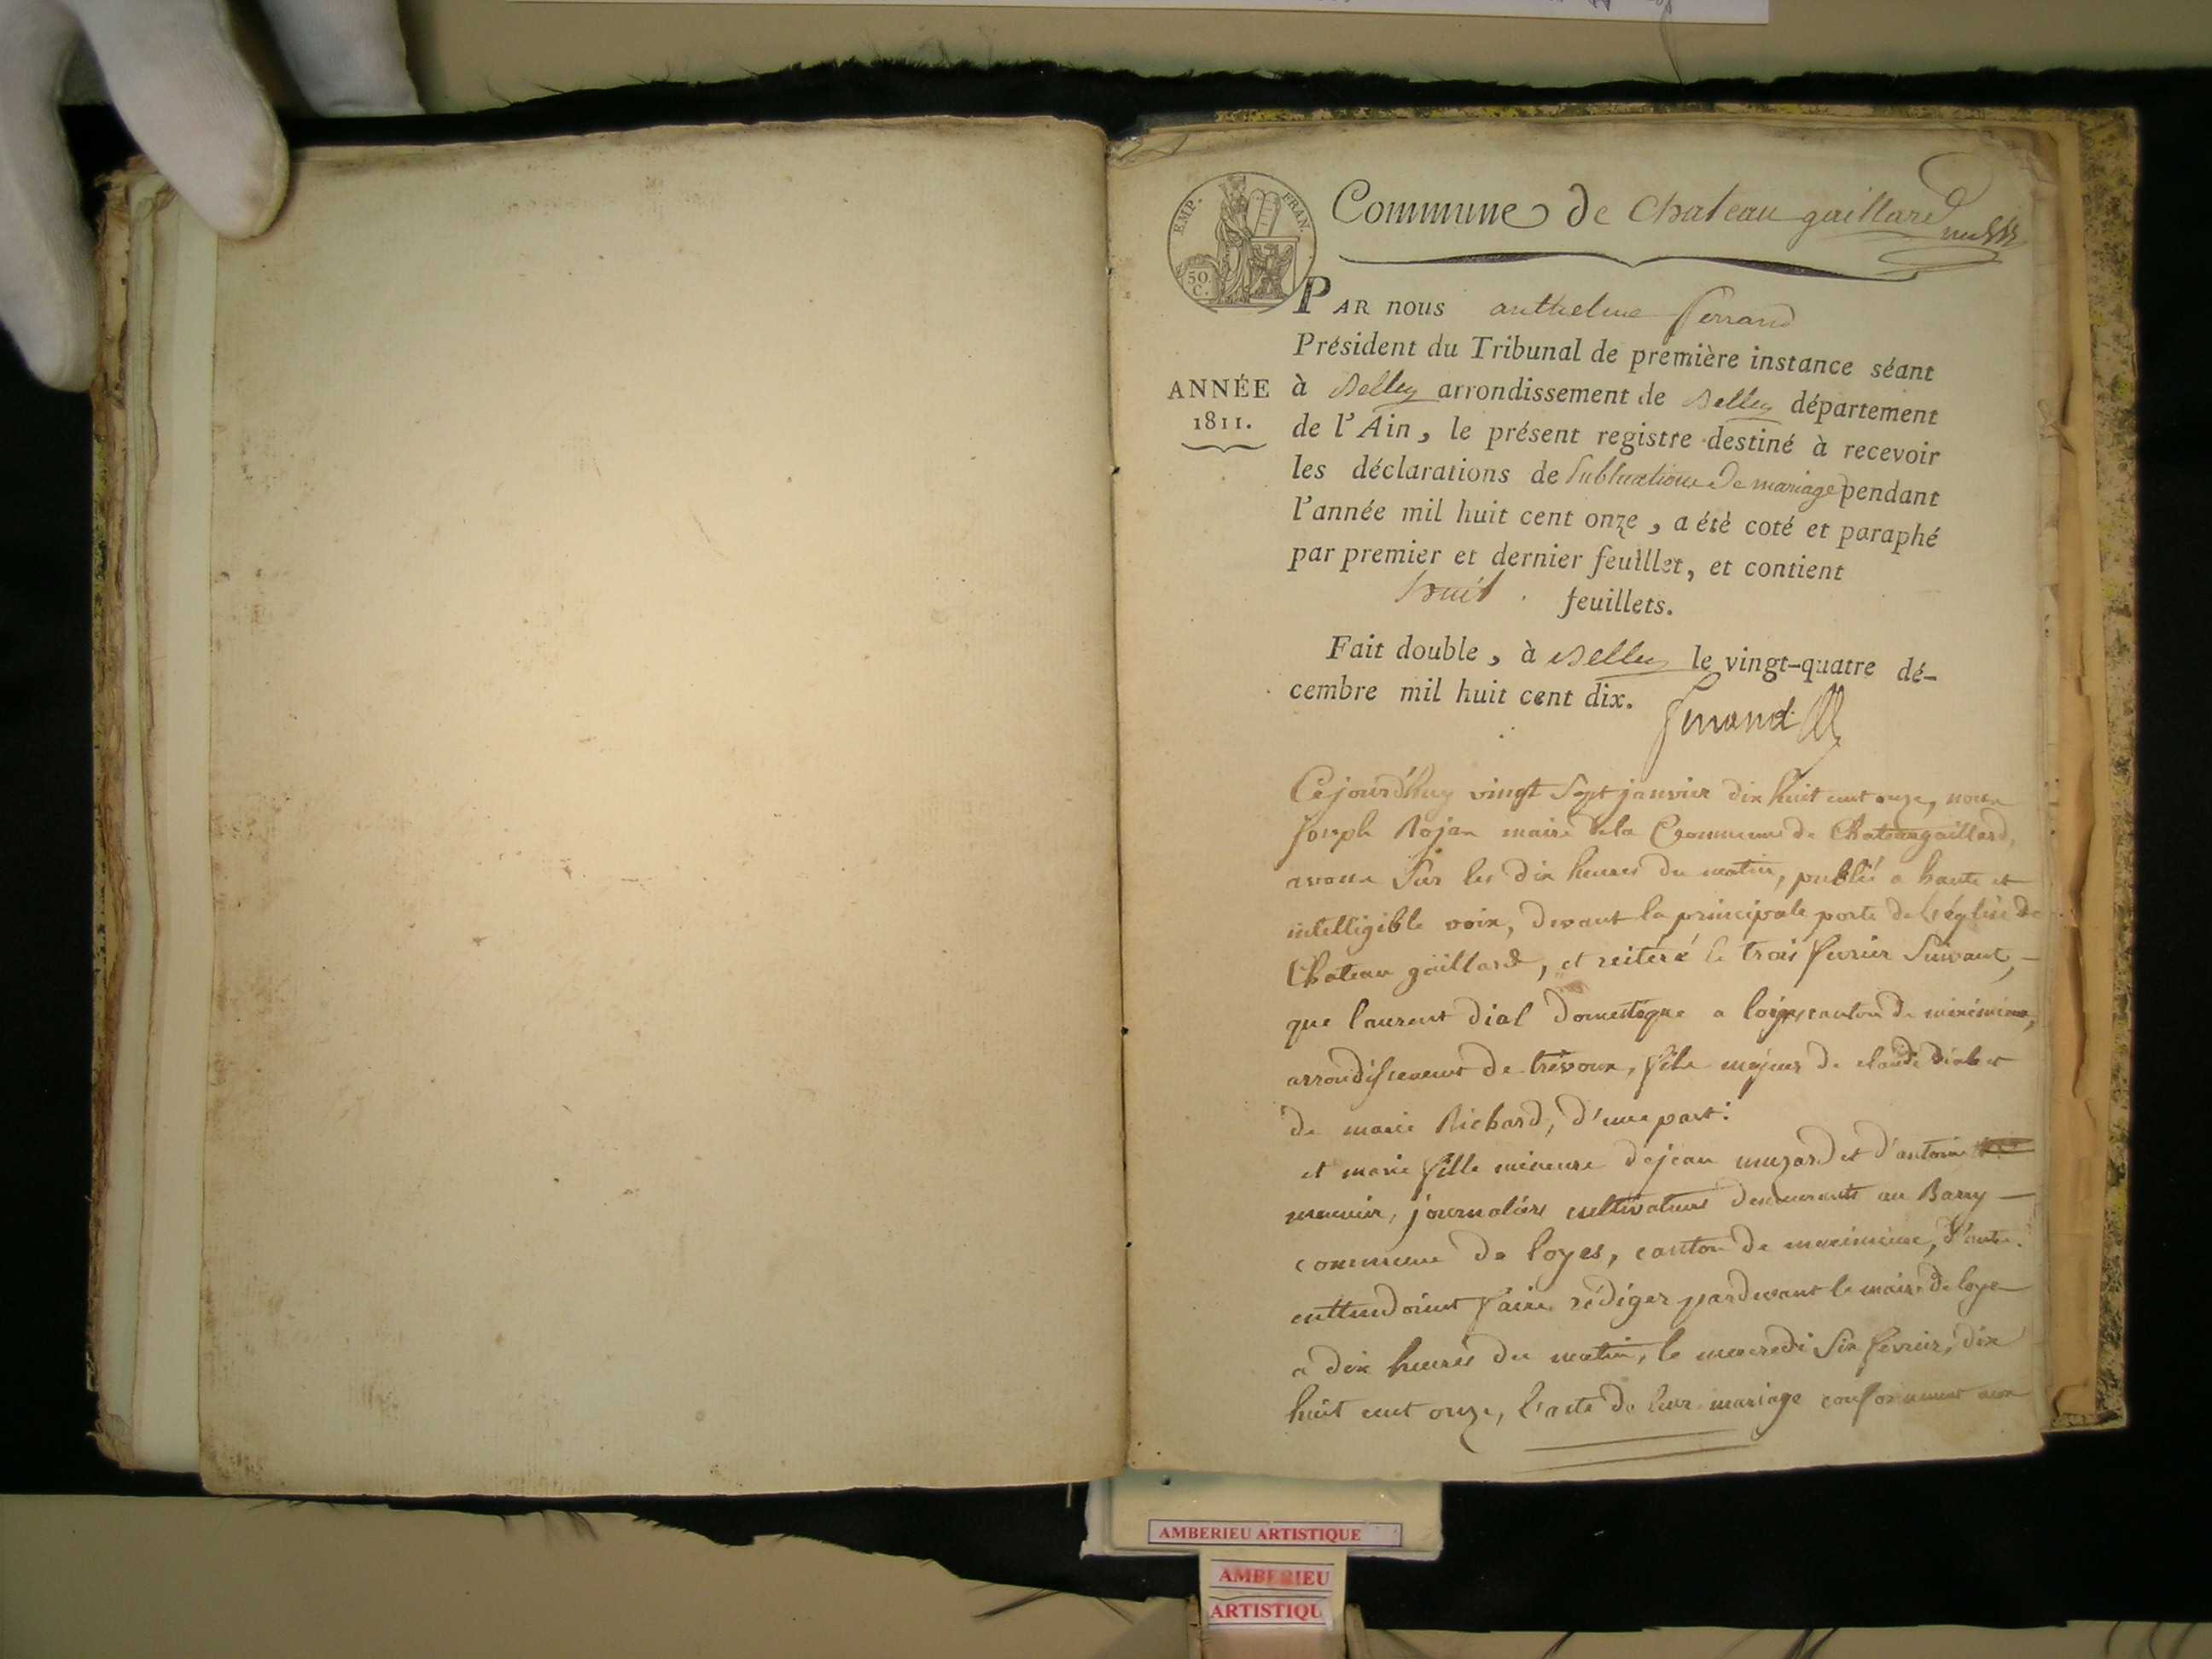 EMP. FRAN.
50 C.
Commune de Chateau gaillard
PAR nous anthelme ferrand
Président du Tribunal de première instance séant
ANNÉE
1811.
à Belley arrondissement de Belley département
de l'Ain, le présent registre destiné à recevoir
les déclarations de Publications de mariage pendant
l'année mil huit cent onze, a été coté et paraphé
par premier et dernier feuillet, et contient
huit feuillets.
Fait double, à Belley le vingt-quatre dé-
cembre mil huit cent dix.
ferrand
Cejourd'huy vingt Sept janvier dix huit cent onze, nous
joseph Rojan maire de la Commune de Chateaugaillard,
avons Sur les dix heures du matin, publié a haute et
intelligible voix, devant la principale porte de l'église de
Chateau gaillard, et reitéré le trois fevrier Suivant,
que laurent dial domestique a loyes canton de meximieux,
arrondissement de trévoux, fils majeur de claude dial et
de marie Richard, d'une part:
et marie fille mineure de jean muzard et d'antoine
meunier, journaliers cultivateurs demeurants au Barry
commune de loyes, canton de meximieux, d'autre.
enttendoient faire rédiger pardevant le maire de loye
a dix heures du matin, le mercredi Six fevrier, dix
huit cent onze, l'acte de leur mariage conformement aux
AMBERIEU ARTISTIQUE
AMBERIEU
ARTISTIQU